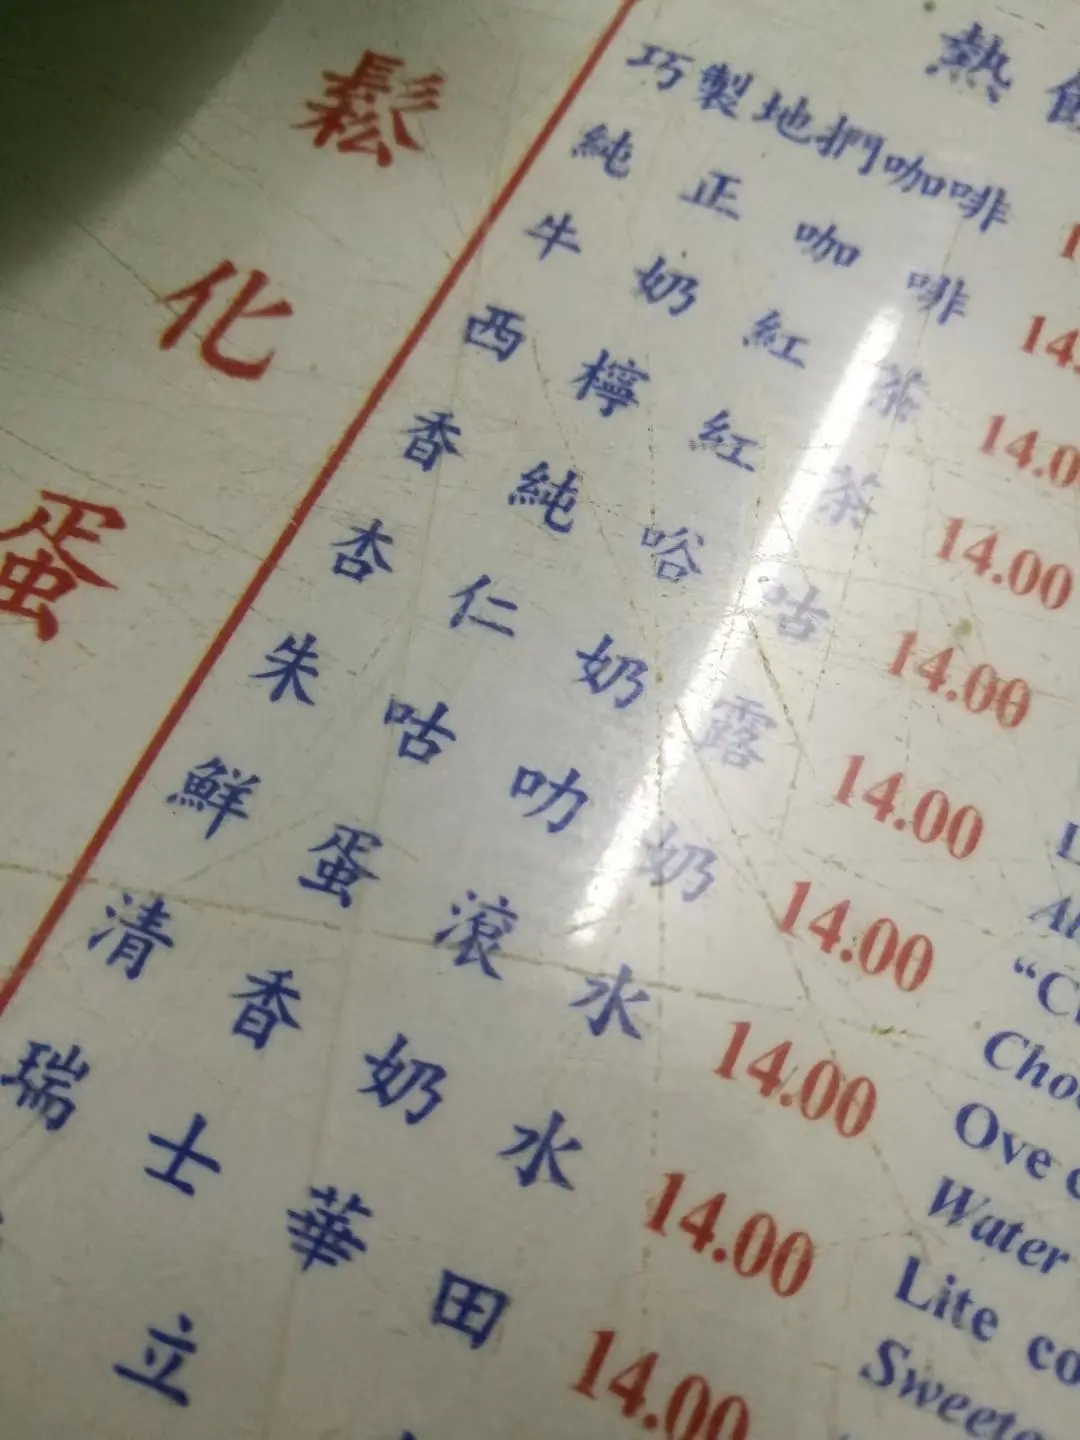 鬆化蛋
熱
巧製地捫咖啡
純正咖啡 14.
牛奶紅茶 14.0
西檸紅茶 14.00
香純唂咕 14.00
杏仁奶露 14.00
朱咕叻奶 14.00
鮮蛋滾水 14.00
清香奶水 14.00
瑞士華田 14.00
立
“C
Cho
Ove
Water
Lite co
Sweete